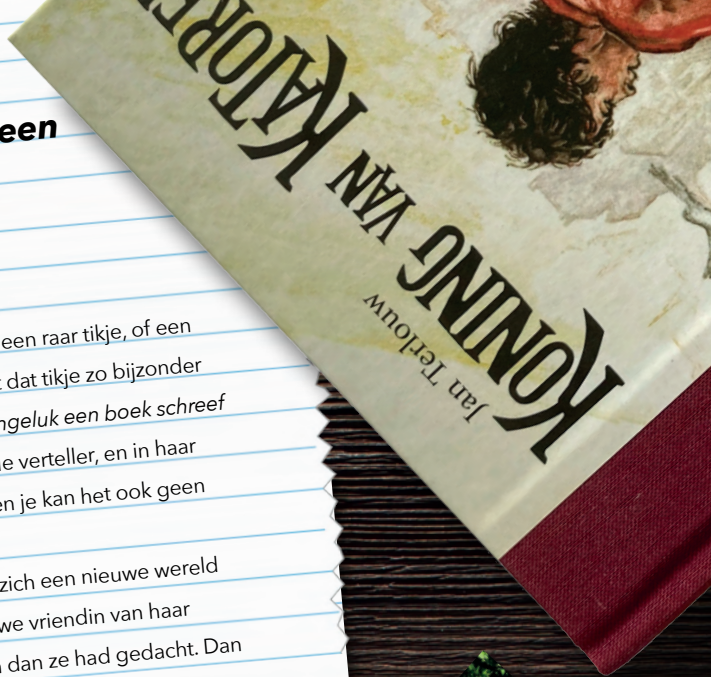 een
een raar tikje, of een
dat tikje zo bijzonder
ngeluk een boek schreef
e verteller, en in haar
en je kan het ook geen
zich een nieuwe wereld
we vriendin van haar
dan ze had gedacht. Dan
Jan Terlouw
KONING VAN KATORE